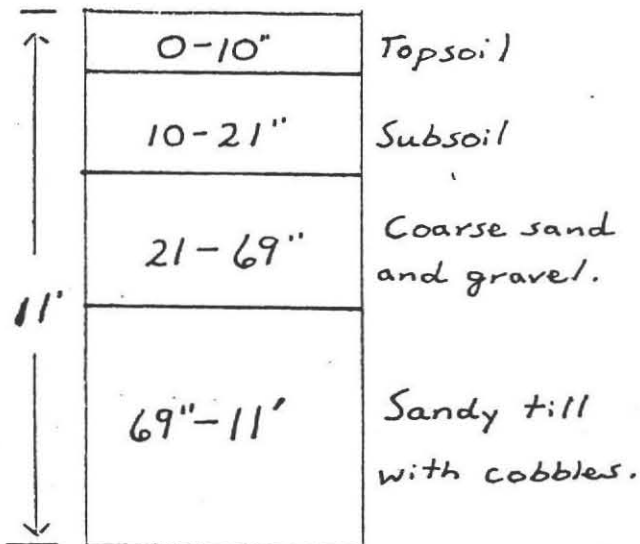 0-10" Topsoil
10-21" Subsoil
21-69" Coarse sand
and gravel.
11'
69"-11' Sandy till
with cobbles.